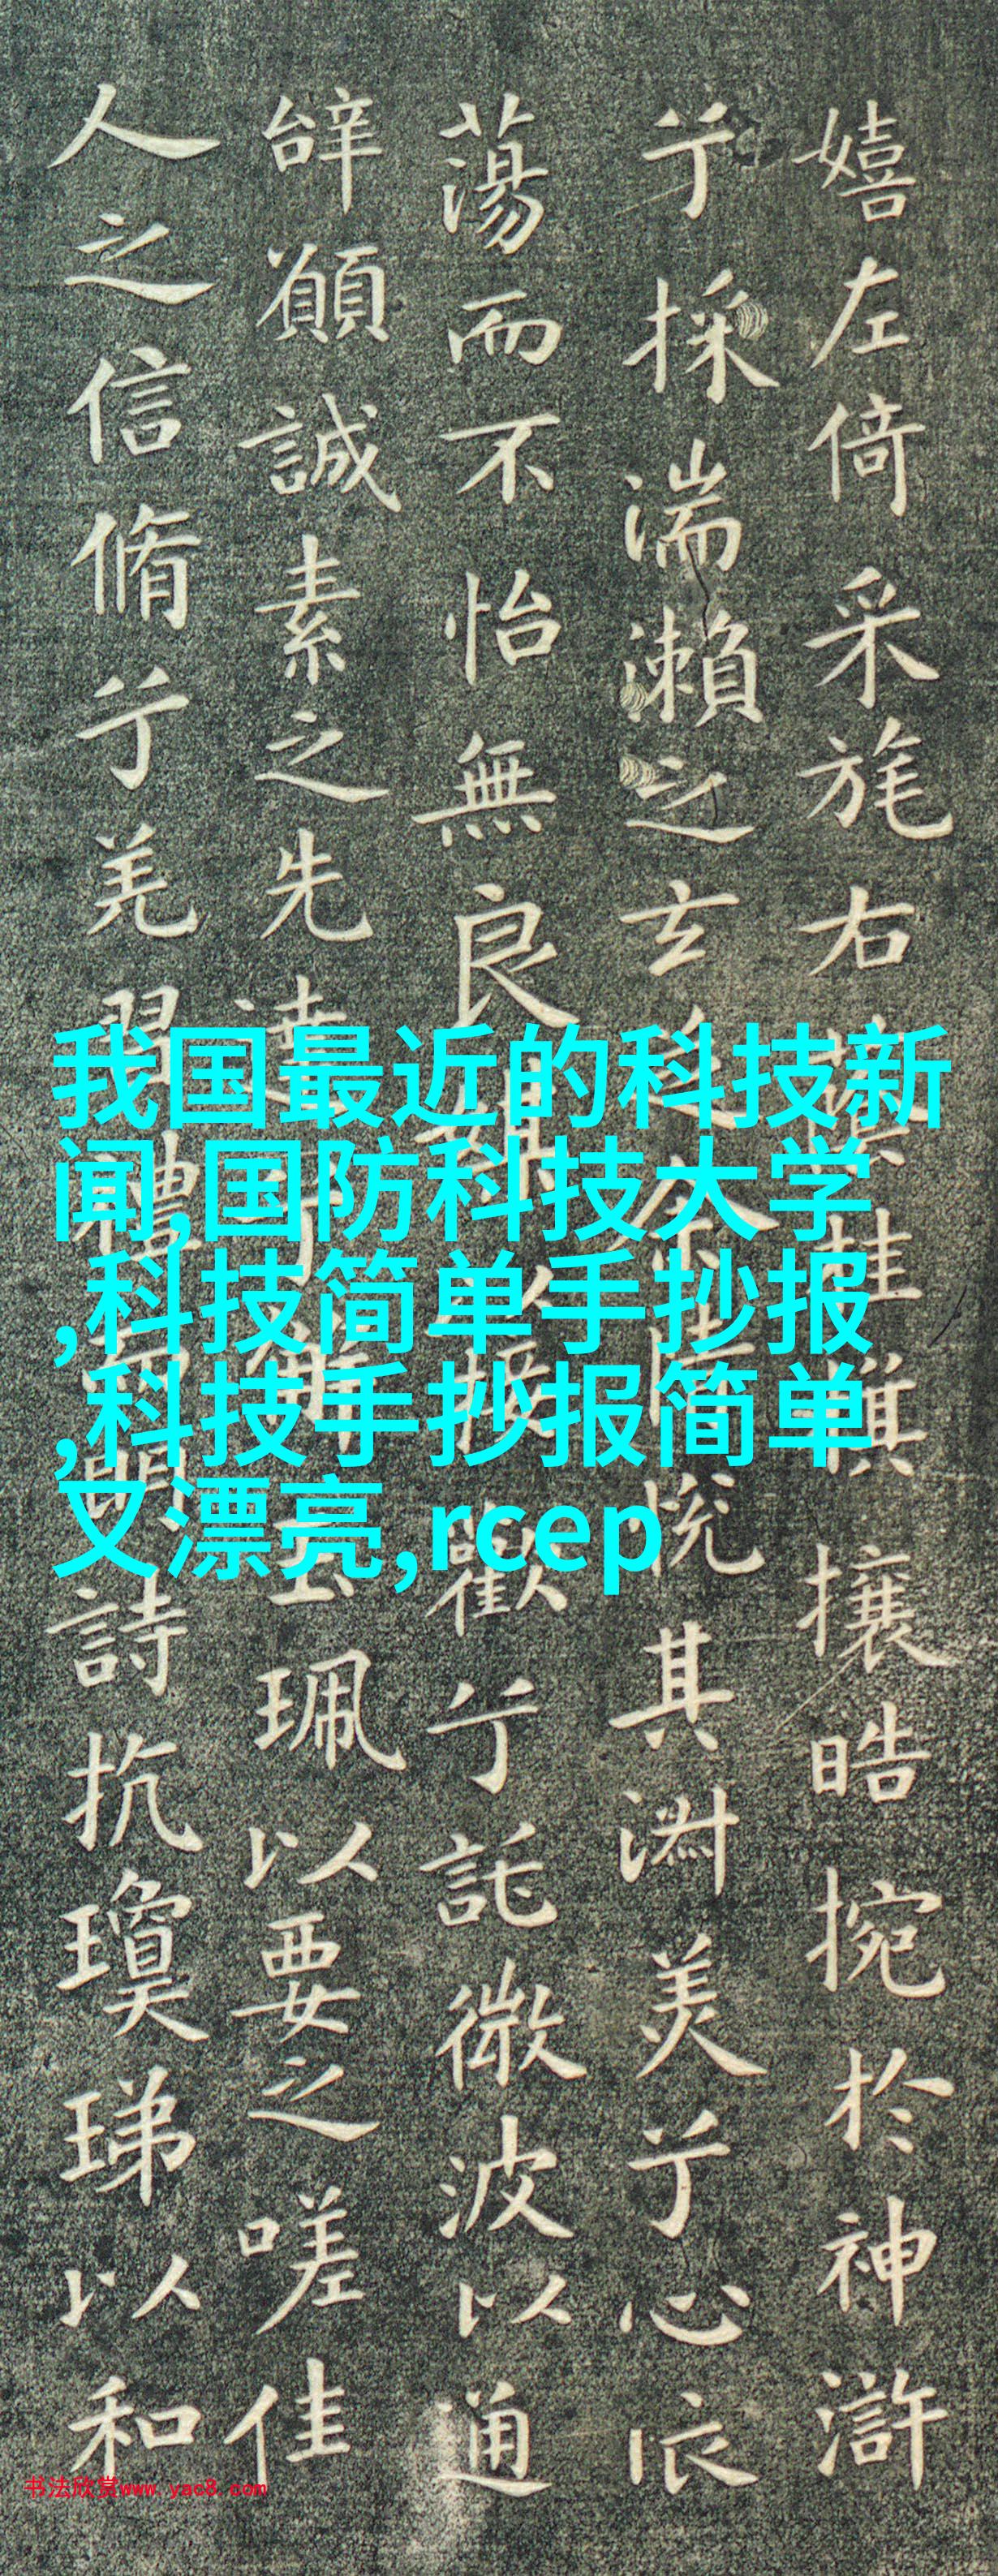 嬉左倚采旄右蔭桂旗攘皓捥於神滸
兮採湍瀨之玄芝余情悅其淵美兮心
蕩而不怡無良媒以接歡兮託微波以通
辝願誠素之先達兮解玉珮以要之嗟佳
人之信脩兮羌習禮而明詩抗瓊珶以和
我国最近的科技新
闻,国防科技大学
,科技简单手抄报
,科技手抄报简单
又漂亮,rcep
书法欣赏www.yac8.com